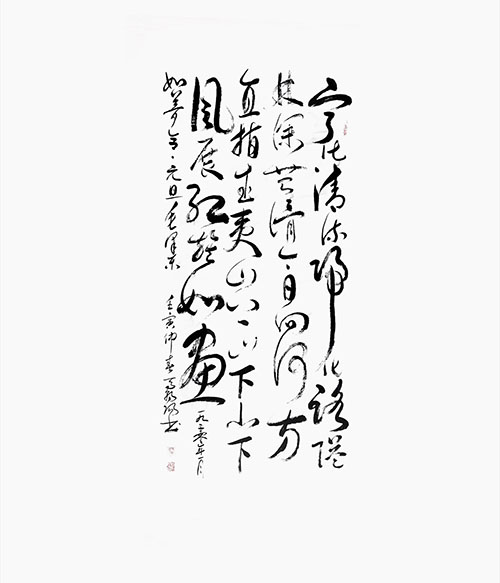 宁化清流归化路隘
林深苔滑今日向何方
直指武夷山下山下山下
风展红旗如画
一九三〇年一月
如梦令·元旦毛泽东
壬寅仲春 书